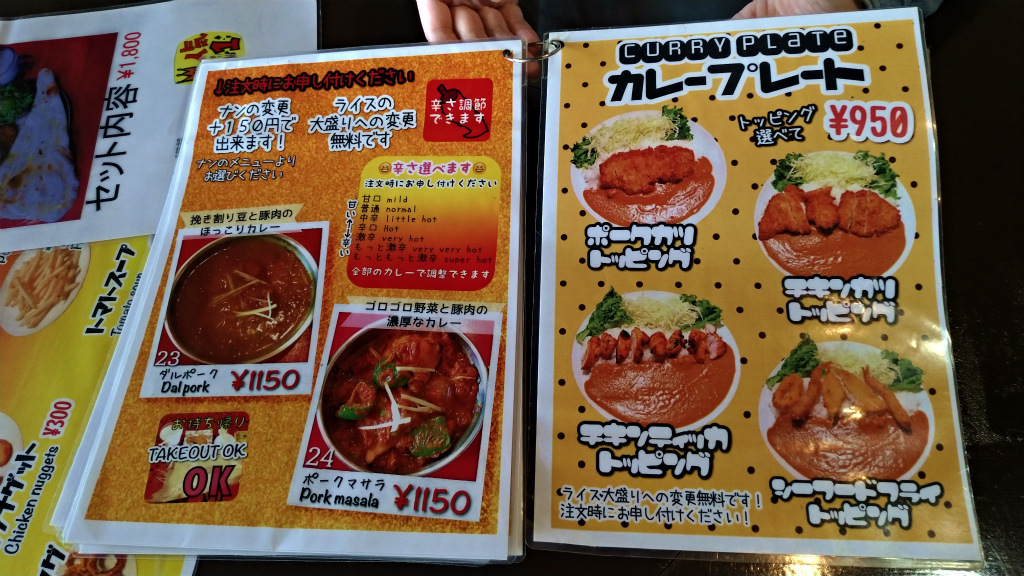 セット内容 ¥1,800
トマトスープ
Tomato soup
¥300
Chicken nuggets
↓注文時にお申し付けください
ナンの変更
＋１５０円で
出来ます！
ナンのメニューより
お選びください
ライスの
大盛りへの変更
無料です
辛さ調節
できます
辛さ選べます
注文時にお申し付けください
甘い←→辛い
甘口 mild
普通 normal
中辛 little hot
辛口 Hot
激辛 very hot
もっと激辛 very very hot
もっともっと激辛 super hot
全部のカレーで調整できます
挽き割り豆と豚肉の
ほっこりカレー
23
ダルポーク
Dalpork
¥1150
ゴロゴロ野菜と豚肉の
濃厚なカレー
24
ポークマサラ
Pork masala
¥1150
お持ち帰り
TAKEOUT OK
OK
CURRY PLATE
カレープレート
トッピング
選べて
¥950
ポークカツ
トッピング
チキンカツ
トッピング
チキンティッカ
トッピング
シーフードフライ
トッピング
ライス大盛りへの変更無料です！
注文時にお申し付けください！